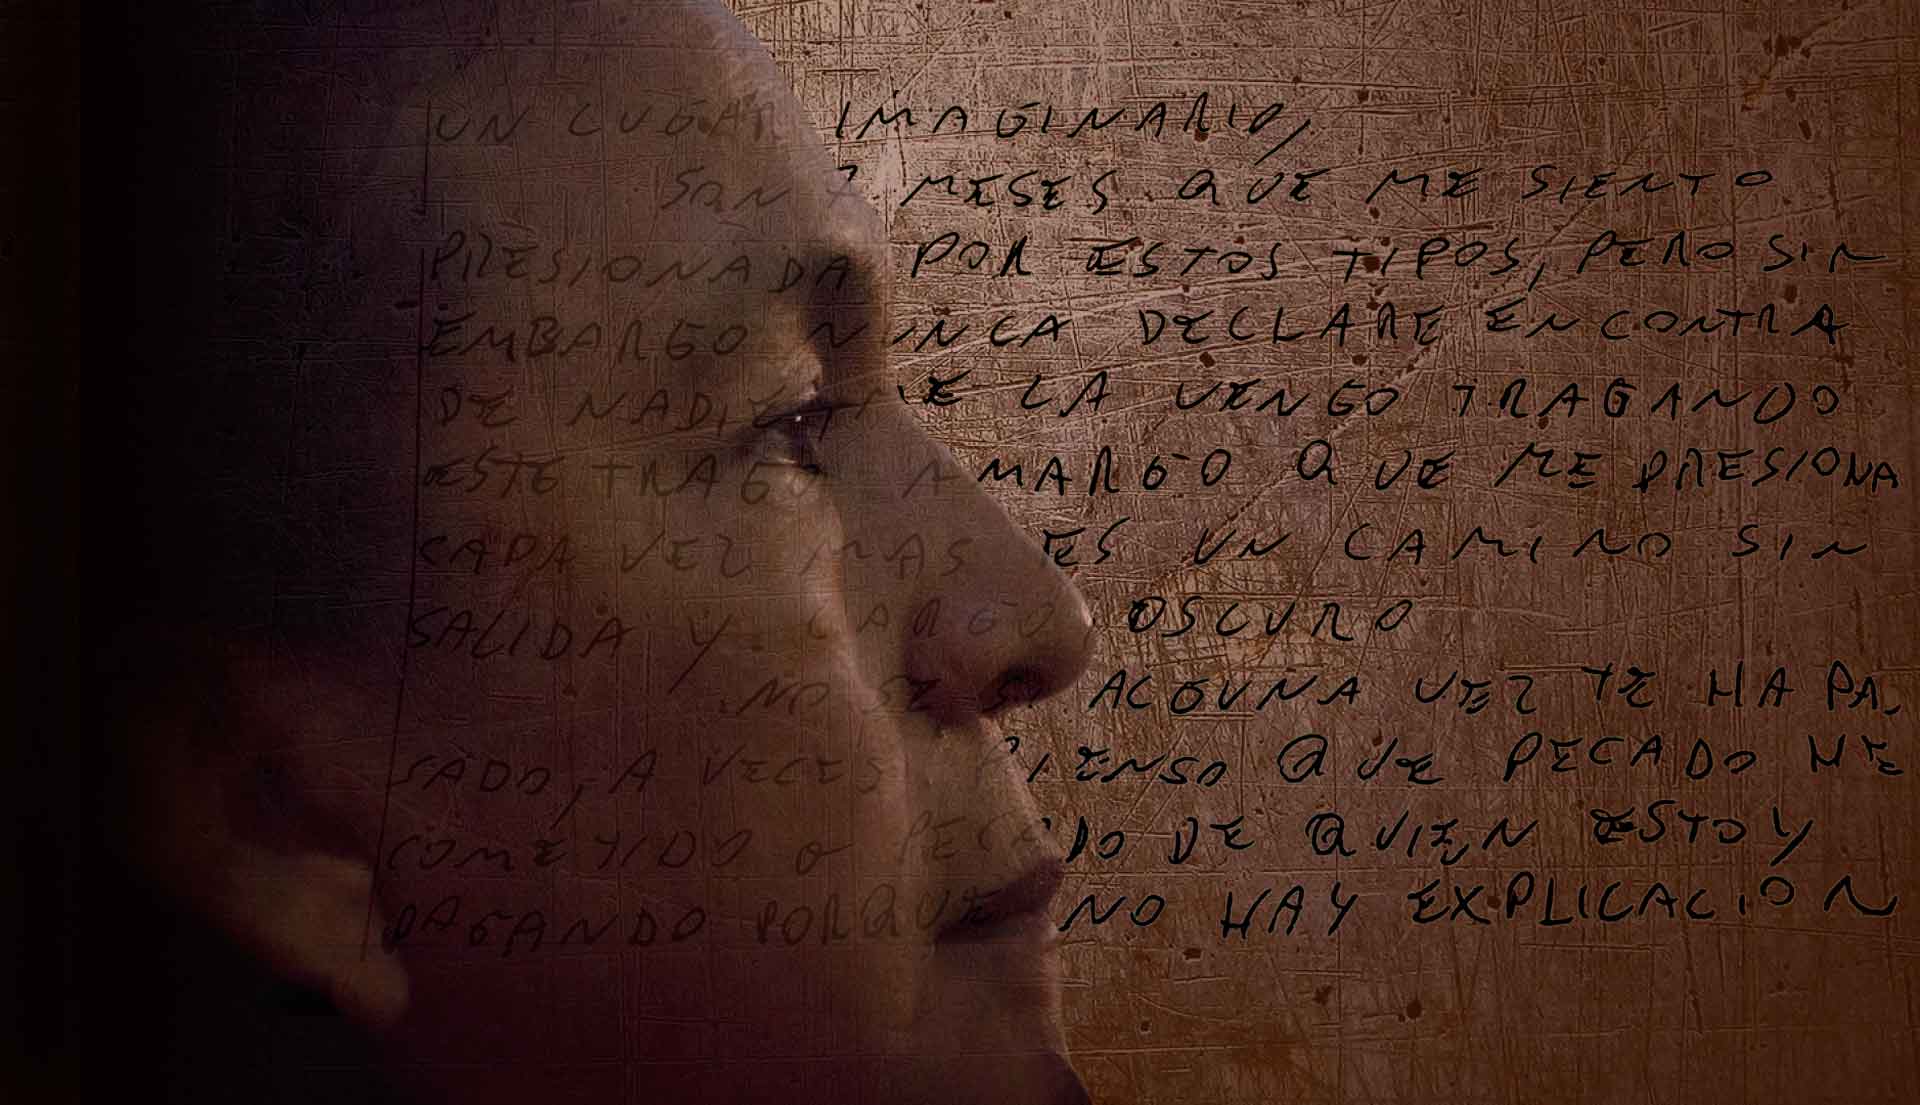 UN LUGAR IMAGINARIO,
SON 7 MESES QUE ME SIENTO
PRESIONADA POR ESTOS TIPOS, PERO SIN
EMBARGO NUNCA DECLARE EN CONTRA
DE NADIE QUE LA VENGO TRAGANDO
ESTE TRAGO AMARGO QUE ME PRESIONA
CADA VEZ MAS ES UN CAMINO SIN
SALIDA Y LARGO, OSCURO
NO SE SI ALGUNA VEZ TE HA PA-
SADO, A VECES PIENSO QUE PECADO HE
COMETIDO O PECADO DE QUIEN ESTOY
PAGANDO PORQUE NO HAY EXPLICACION